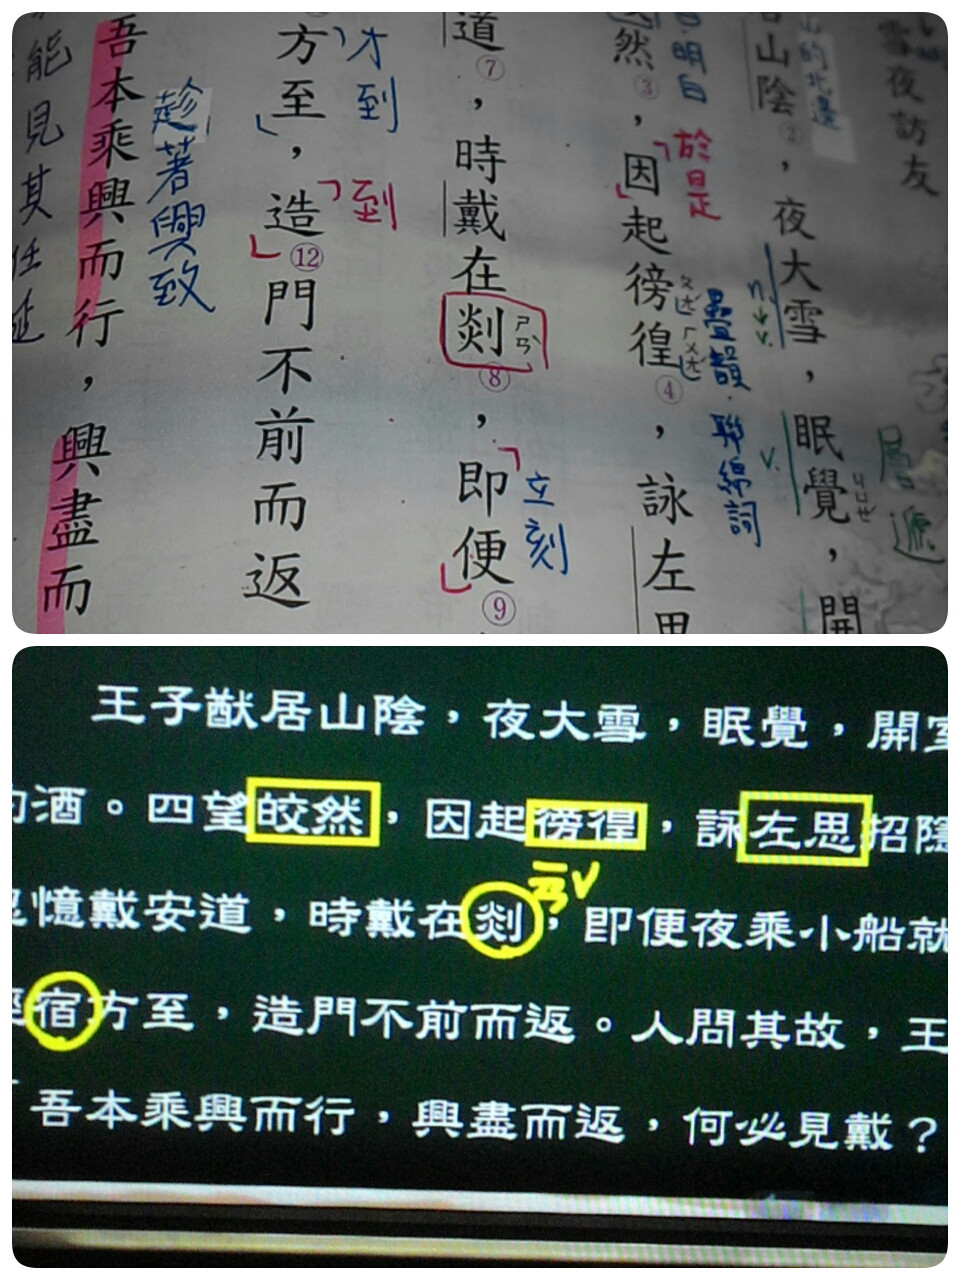 雪夜訪友
層遞
山的北邊
山陰②，夜大雪，眠覺，開
ㄐㄩㄝ
n.→v.
v.
明白
然③，因起徬徨④，詠左思
於是
ㄆㄤ ㄏㄨㄤ
疊韻．聯綿詞
道⑦，時戴在剡⑧，即便⑨
ㄕㄢˋ
立刻
方至，造⑫門不前而返
才到
到
吾本乘興而行，興盡而
趁著興致
能見其任
王子猷居山陰，夜大雪，眠覺，開室
酌酒。四望皎然，因起徬徨，詠左思招隱
憶戴安道，時戴在剡，即便夜乘小船就
ㄢˇ
經宿方至，造門不前而返。人問其故，王
「吾本乘興而行，興盡而返，何必見戴？